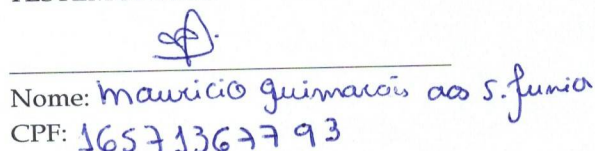 Nome: Mauricio Guimarães dos S. Junior
CPF: 16571367793